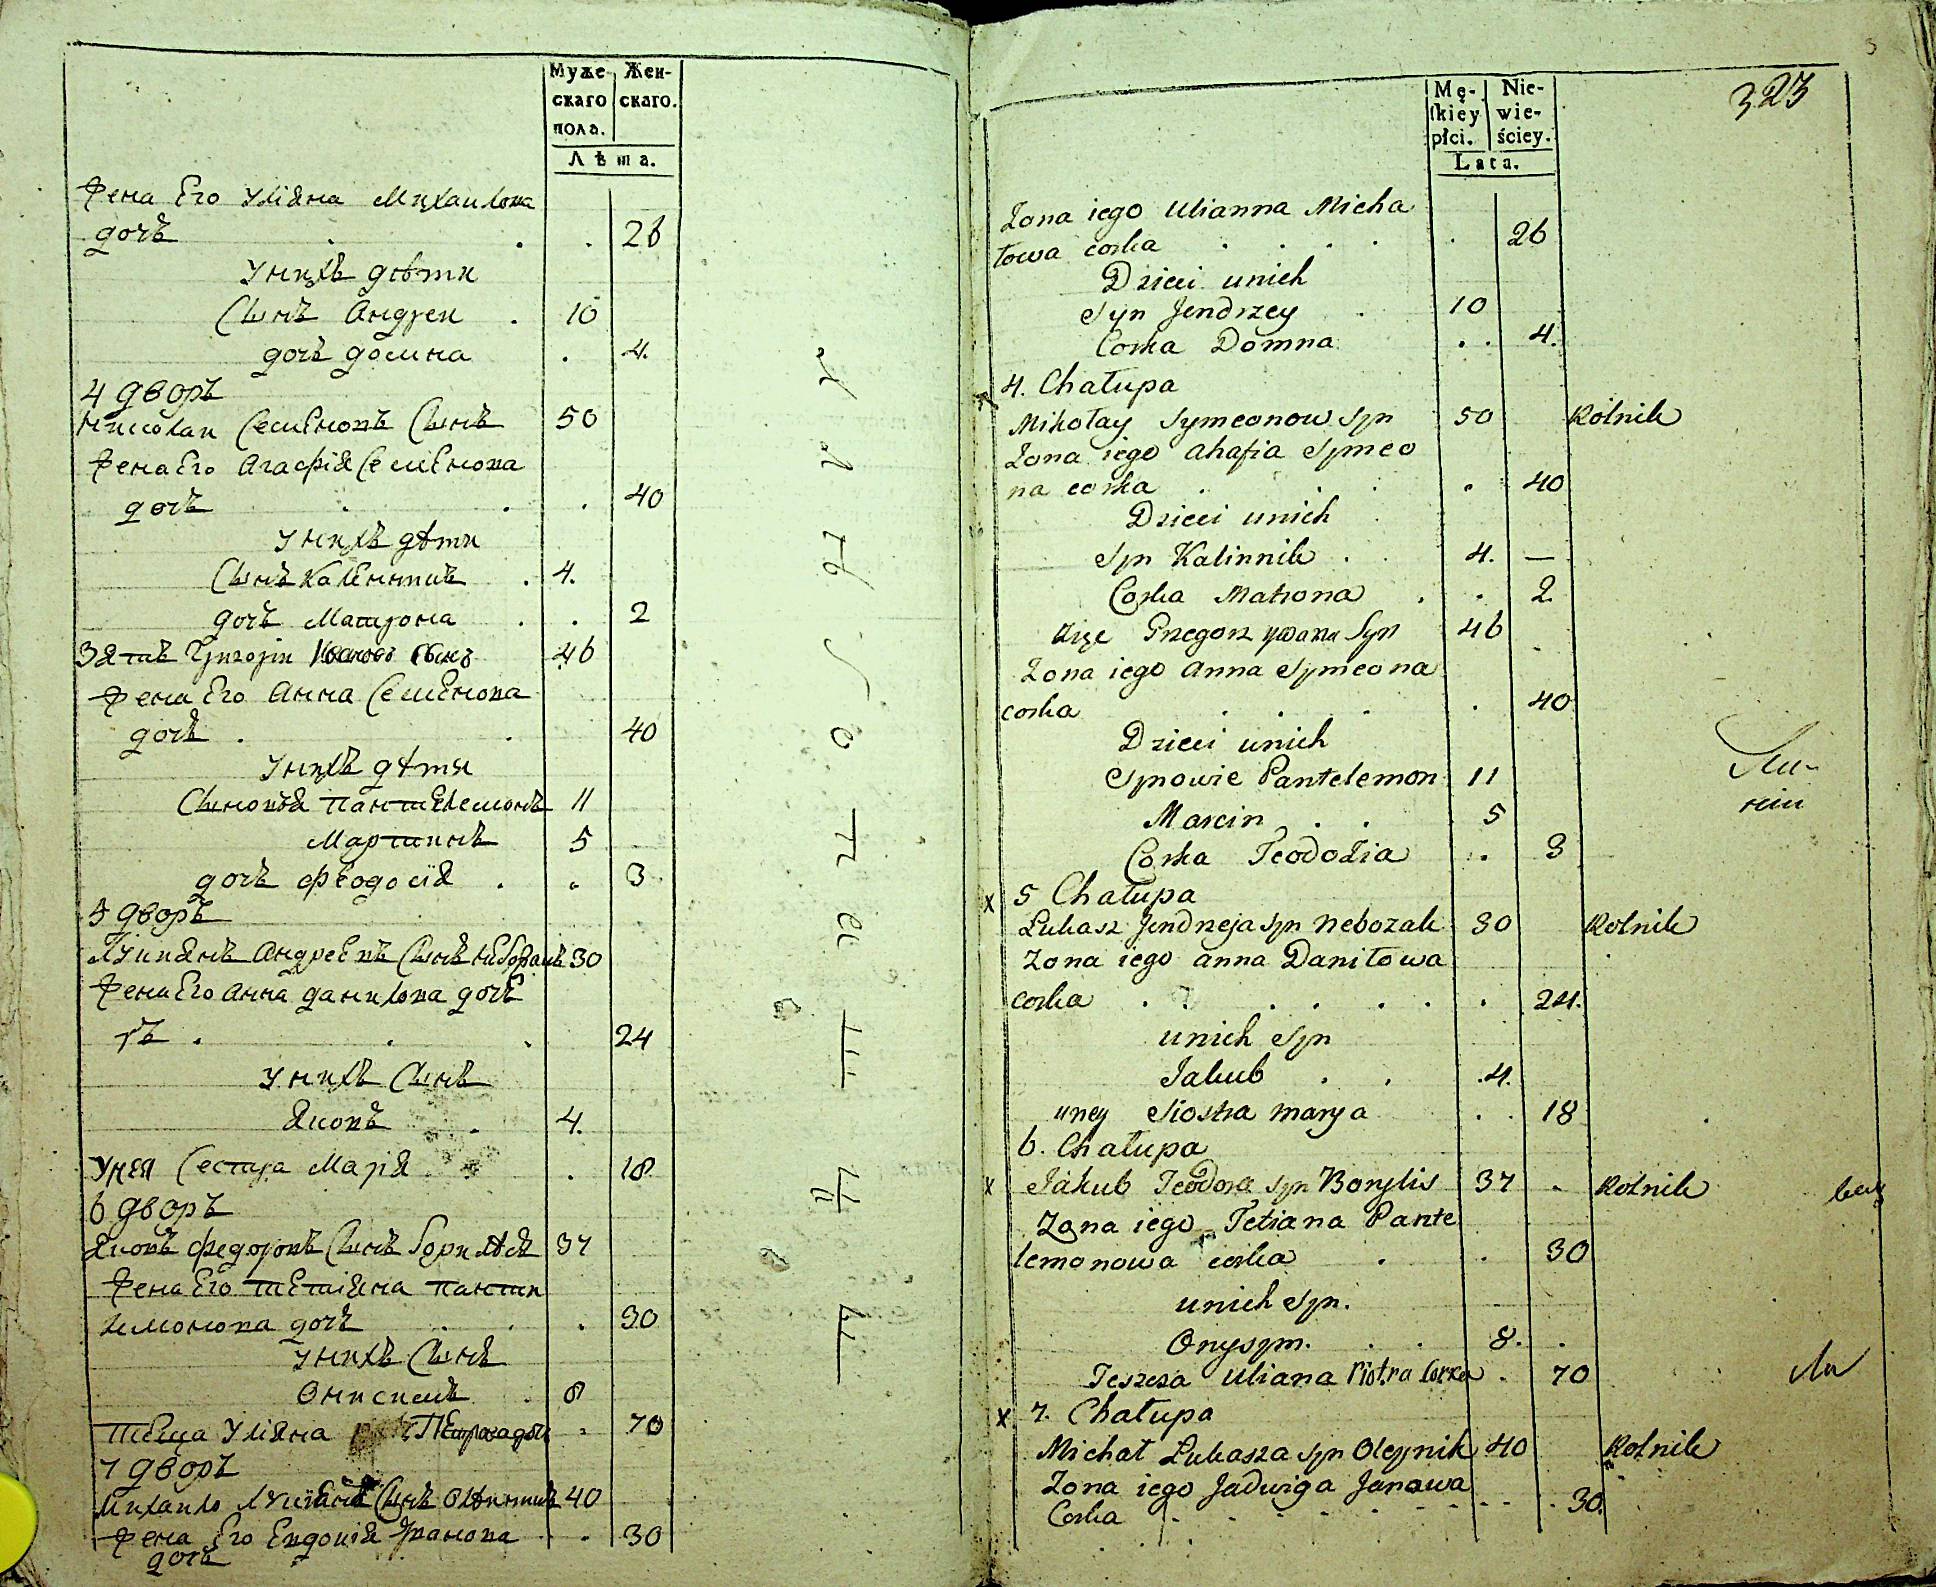 Муже-
скаго
пола.
Жен-
скаго.
Лѣта.
Жена Его Уліяна Михаилова
дочь . . . 26
У нихъ дѣти
Сынъ Андреи . 10
дочь домна . 4.
4 дворъ
Николаи Семеновъ Сынъ 50
Жена Его Агафія Семенова
дочь . . . 40
У нихъ дѣти
Сынъ Каленникъ . 4.
дочь Матрона . . 2
Зять Григорiи Ивановъ Сынъ 46
Жена Его Анна Семенова
дочь . . 40
У нихъ дѣти
Сыновья Пантелемонъ 11
Мартинъ 5
дочь Феодосія . . 3
5 дворъ
Лукьянъ Андреевъ Сынъ Небозакъ 30
Жена Его Анна данилова доче
ръ . . . 24
У нихъ Сынъ
Яковъ . 4.
У нея Сестра Марія . 18
6 дворъ
Яковъ Федоровъ Сынъ 37
Жена Его Тетіяна Панти
лимонова дочь . . . 30
У нихъ Сынъ
Онисимъ . 8
Теща Уліяна Петрова дочь . 70
7 дворъ
Михаило Сынъ Олѣйникъ 40
Жена Его Евдокія Иванова . . 30
дочь
323
Mę-
ſkiey
płci.
Nie-
wie-
ściey.
Lata.
Zona iego Ulianna Micha
łowa corka . . . . . 26
Dzieci unich
Syn Jendrzey . 10
Corka Domna . . 4.
4. Chałupa
Mikołay Symeonow Syn 50 Rolnik
Zona iego Ahafia Symeo
na corka . . . . 40
Dzieci unich
Syn Kalinnik . . 4. —
Corka Matrona . . 2
Zięć Grzegorz ywana Syn 46
Zona iego Anna Symeona
corka . . . . 40
Dzieci unich
Synowie Pantelemon 11
Marcin . . 5
Corka Teodozia . 3
x 5 Chałupa
Łukasz Jendrzeja syn Nebozak 30 Rolnik
Zona iego Anna Daniłowa
corka . . . . . . 24.
unich Syn
Jakub . . . 4.
uney Siostra Marya . . 18
6. Chałupa
x Jakub Teodora syn Borylis 37 . Rolnik
Zona iego Tetiana Pante
lemonowa corka . . 30
unich Syn.
Onysym. . . 8. .
Teszcza Uliana Piotra Corka . 70
x 7. Chałupa
Michał Łukasza syn Oleynik 40 Rolnik
Zona iego Jadwiga Janowa
Corka . . . . . . 30.